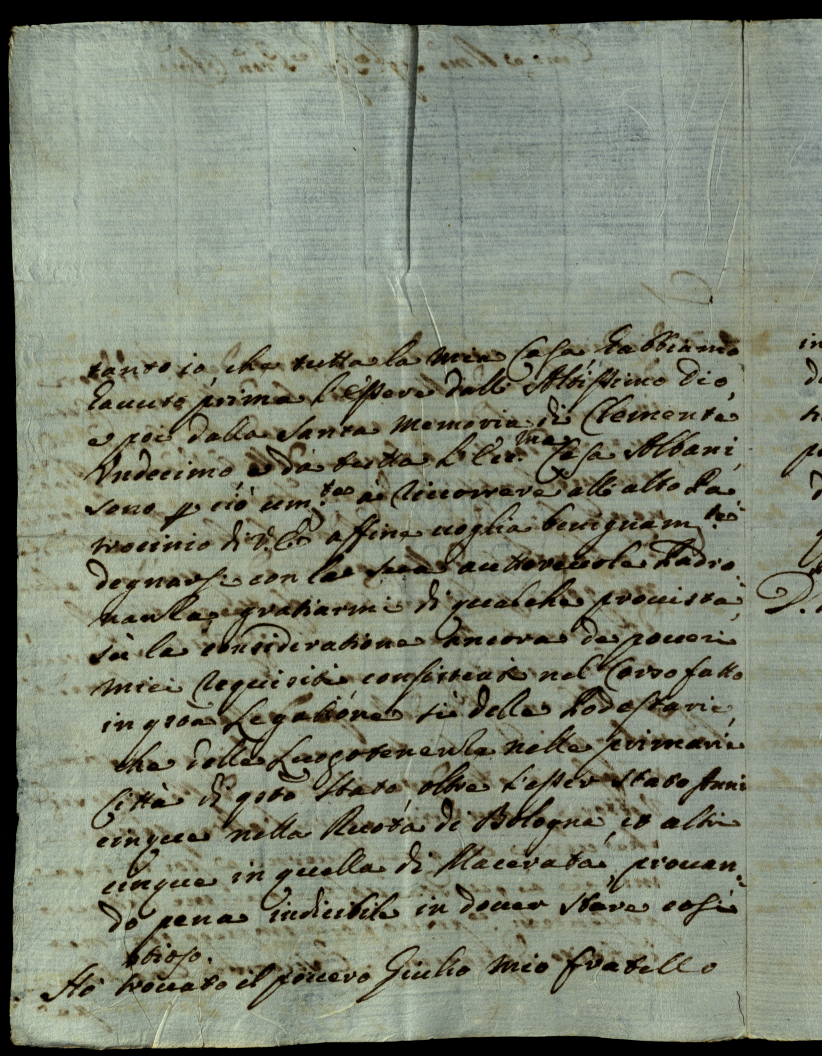 tanto io, che tutta la mia Casa habbiamo
havuto prima l'essere dall' Altissimo Dio,
e poi dalla Santa Memoria di Clemente
Undecimo, e da tutta l'Ecc.ma Casa Albani,
sono p ciò um.te à ricorrere all'alto Pa„
trocinio di V. E. affine voglia benignam.te
degnarsi con la sua autorevole Padro„
nanza gratiarmi di qualche provista
sù la consideratione ancora de poveri
miei requisiti consistenti nel Corso fatto
in q.sta Legatione sì delle Podestarie,
che delle Luogotenenze nelle primarie
Città di q.sto Stato, oltre l'esser stato Anni
cinque nella Ruota di Bologna, et altri
cinque in quella di Macerata, provan„
do pena indicibile in dover stare così
otioso.
Hò trovato il povero Giulio mio fratello